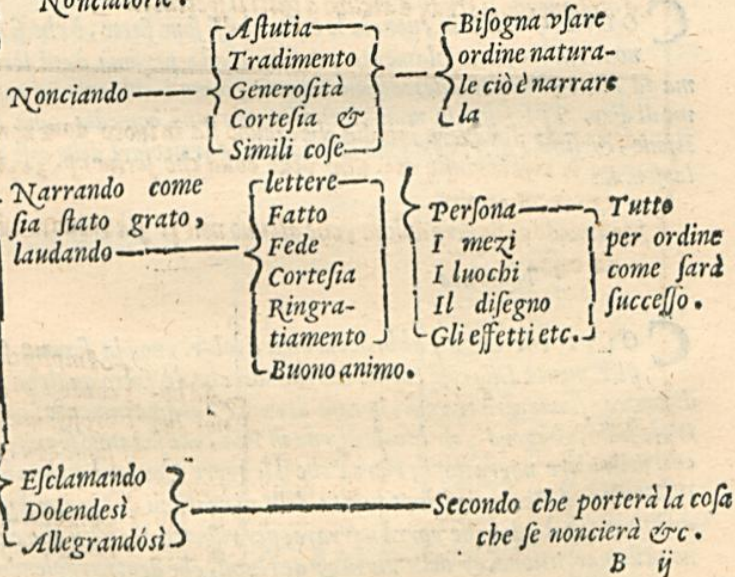 Nonciatorie.
Nonciando
Aſtutia
Tradimento
Generoſità
Corteſia &
Simili coſe
Biſogna vſare
ordine natura-
le ciò è narrare
la
Narrando come
ſia ſtato grato,
laudando
lettere
Fatto
Fede
Corteſia
Ringra-
tiamento
Buono animo.
Perſona
I mezi
I luochi
Il diſegno
Gli effetti etc.
Tutto
per ordine
come ſarà
ſucceſſo.
Eſclamando
Dolendesì
Allegrandósì
Secondo che porterà la coſa
che ſe noncierà &c.
B ij